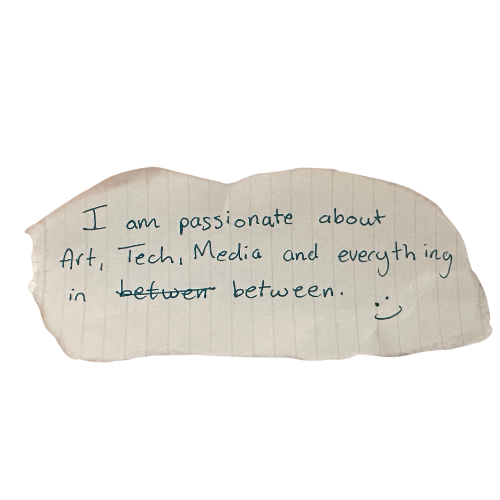 I am passionate about
Art, Tech, Media and everything
in betwen between.